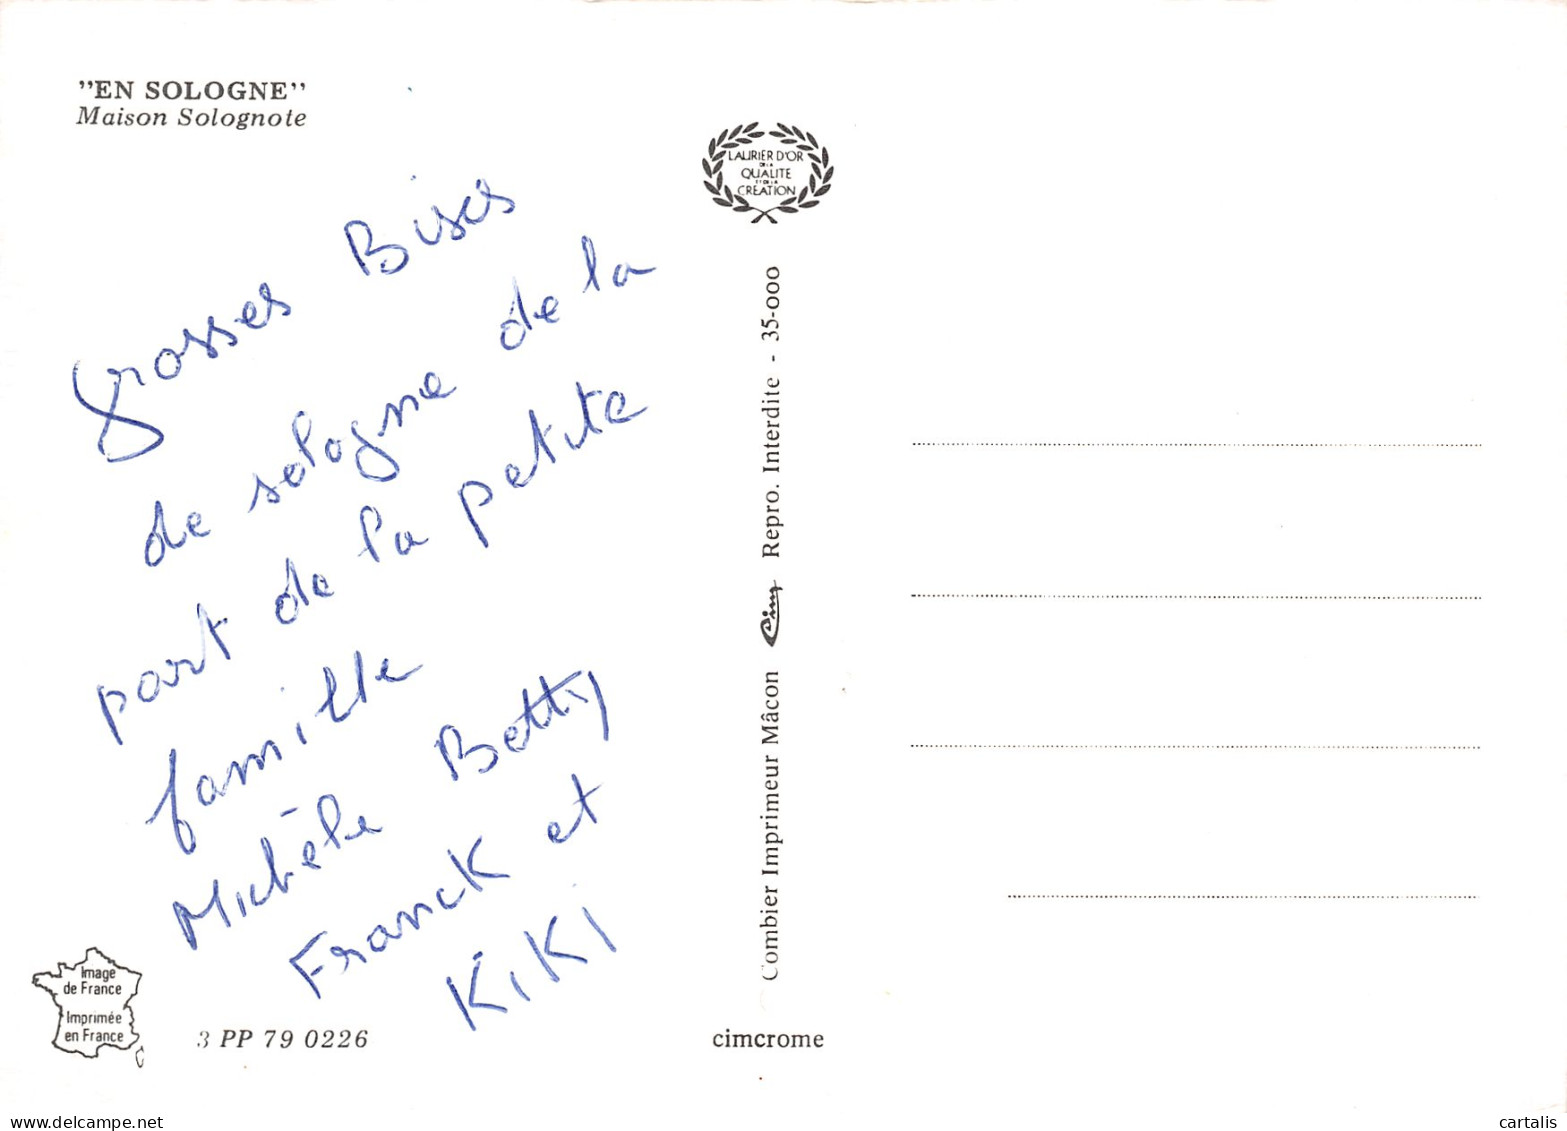 "EN SOLOGNE"
Maison Solognote
Grosses Bises
de sologne de la
part de la petite
famille
Michèle Betty
Franck et
KiKI
Image
de France
Imprimée
en France
3 PP 79 0226
LAURIER D'OR
DE LA
QUALITE
ET DE LA
CRÉATION
Combier Imprimeur Mâcon Cim Repro. Interdite - 35-000
cimcrome
www.delcampe.net
cartalis